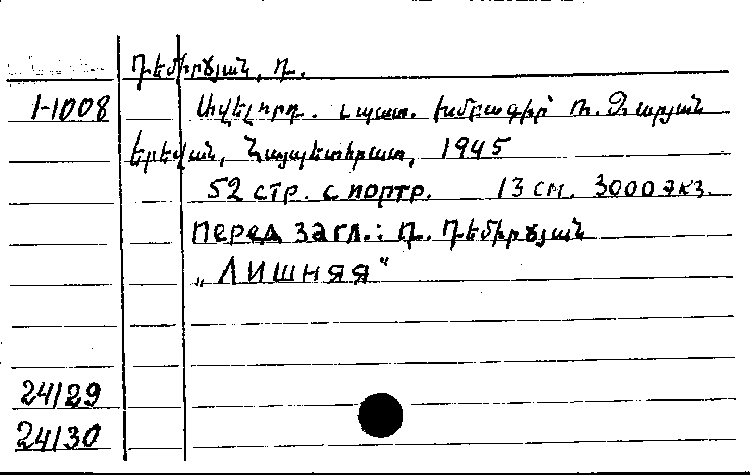 Դեմիրճյան, Դ.
1-1008 Ավելորդ. Նպատ. խմբագիր՝ Ռ. Զարյան
Երեվան, Հայպետհրատ, 1945
52 стр. с портр. 13 см. 3000 экз.
Перед загл.: Դ. Դեմիրճյան
„Лишняя“
24/29
24/30